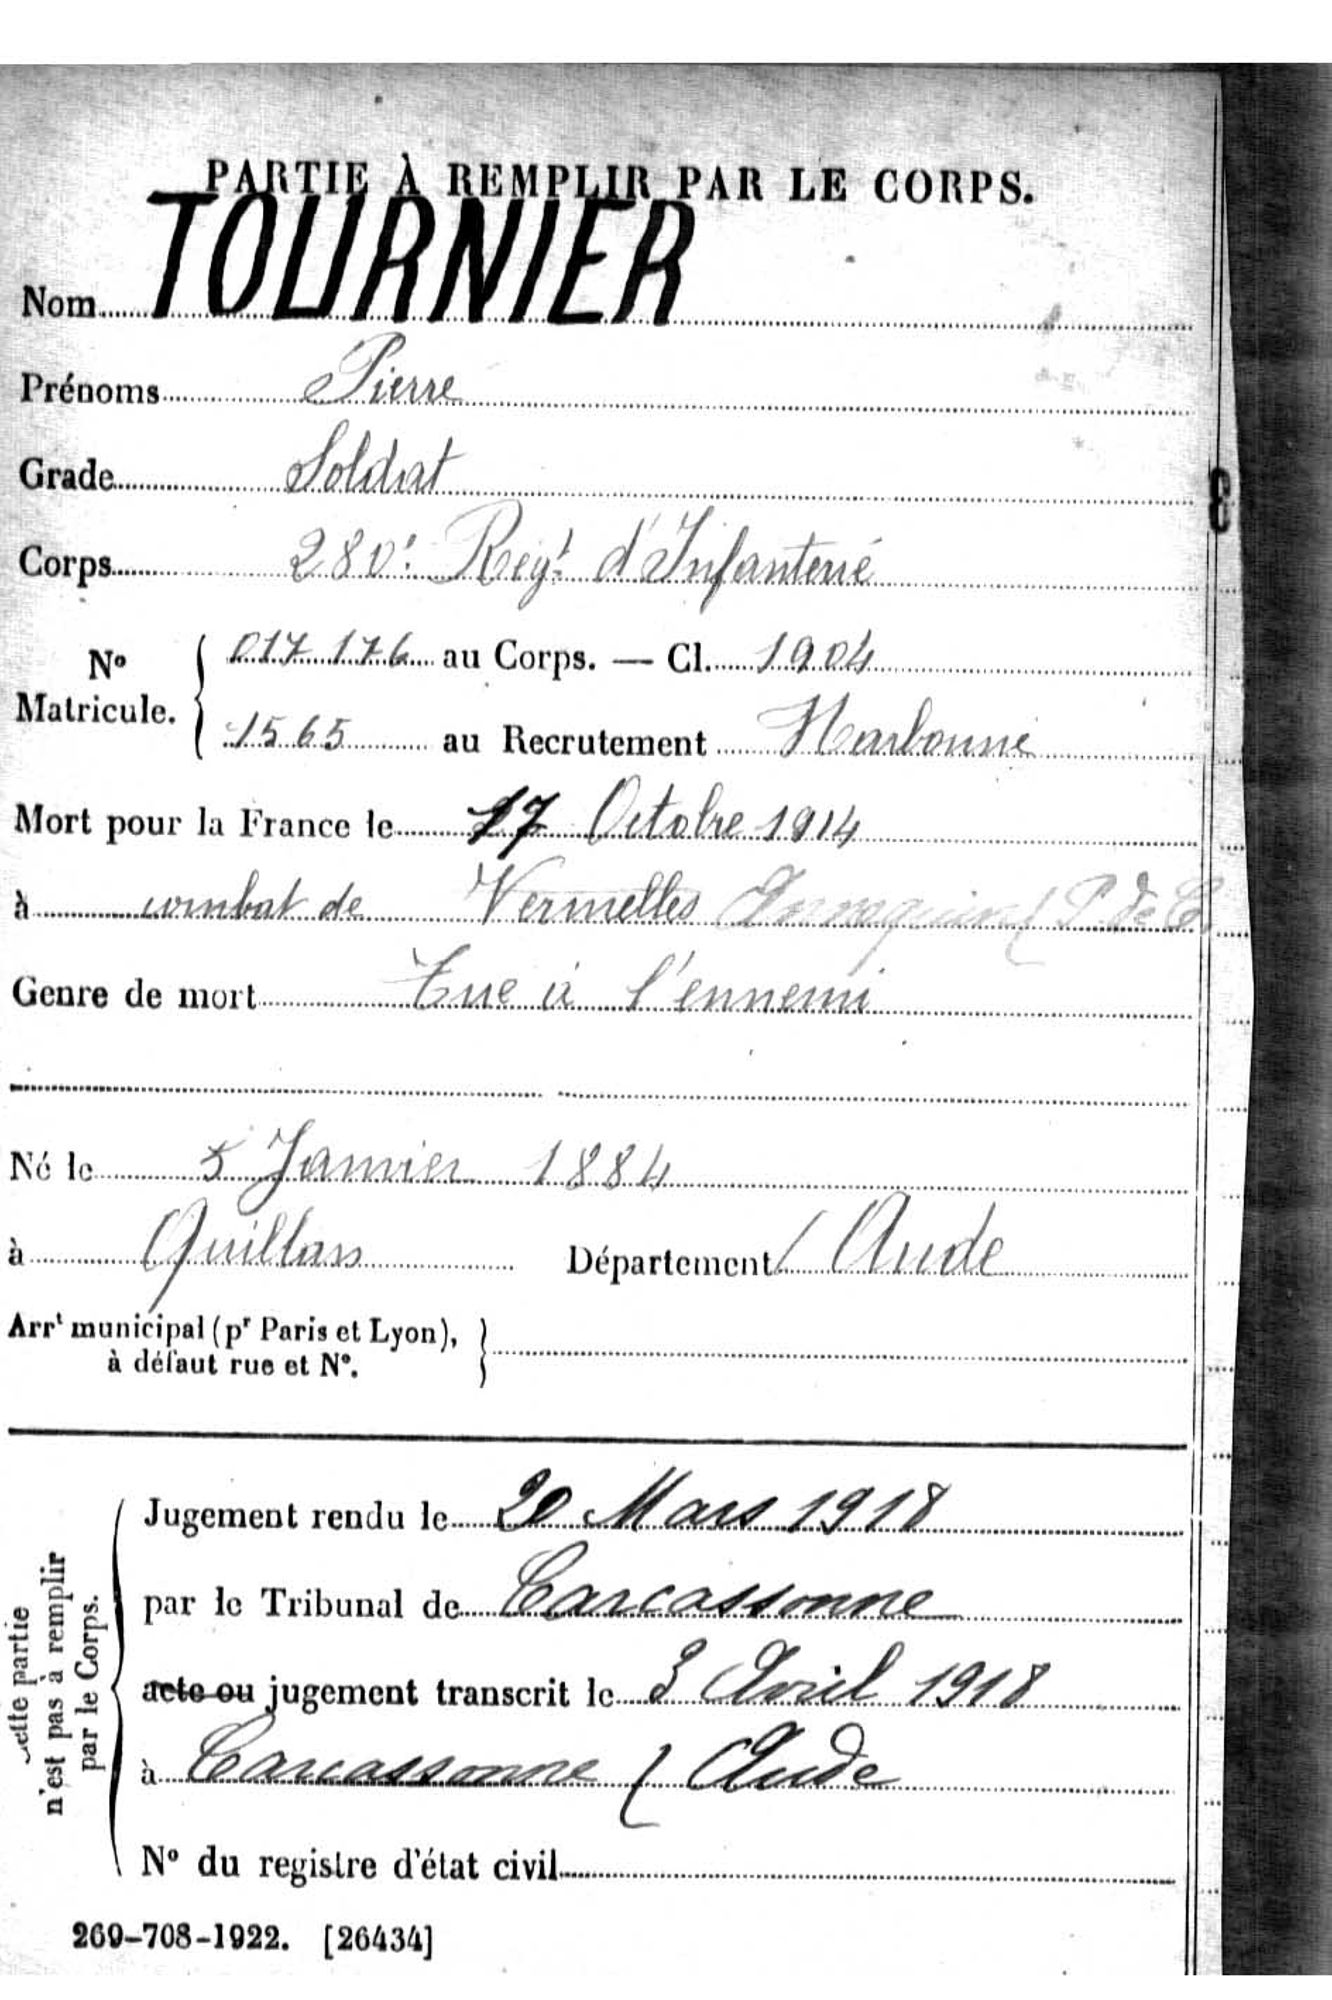 PARTIE À REMPLIR PAR LE CORPS.
Nom TOURNIER
Prénoms Pierre
Grade Soldat
Corps 280e Regt d'Infanterie
No Matricule. { 017176 au Corps. — Cl. 1904
1565 au Recrutement Narbonne
Mort pour la France le 17 Octobre 1914
à combat de Vermelles (P. de C.
Genre de mort Tué à l'ennemi
Né le 5 Janvier 1884
à Quillan Département ( Aude
Arrt municipal (pr Paris et Lyon), }
à défaut rue et No.
Cette partie
n'est pas à remplir
par le Corps.
Jugement rendu le 20 Mars 1918
par le Tribunal de Carcassonne
acte ou jugement transcrit le 3 Avril 1918
à Carcassonne ( Aude
No du registre d'état civil
269-708-1922. [26434]